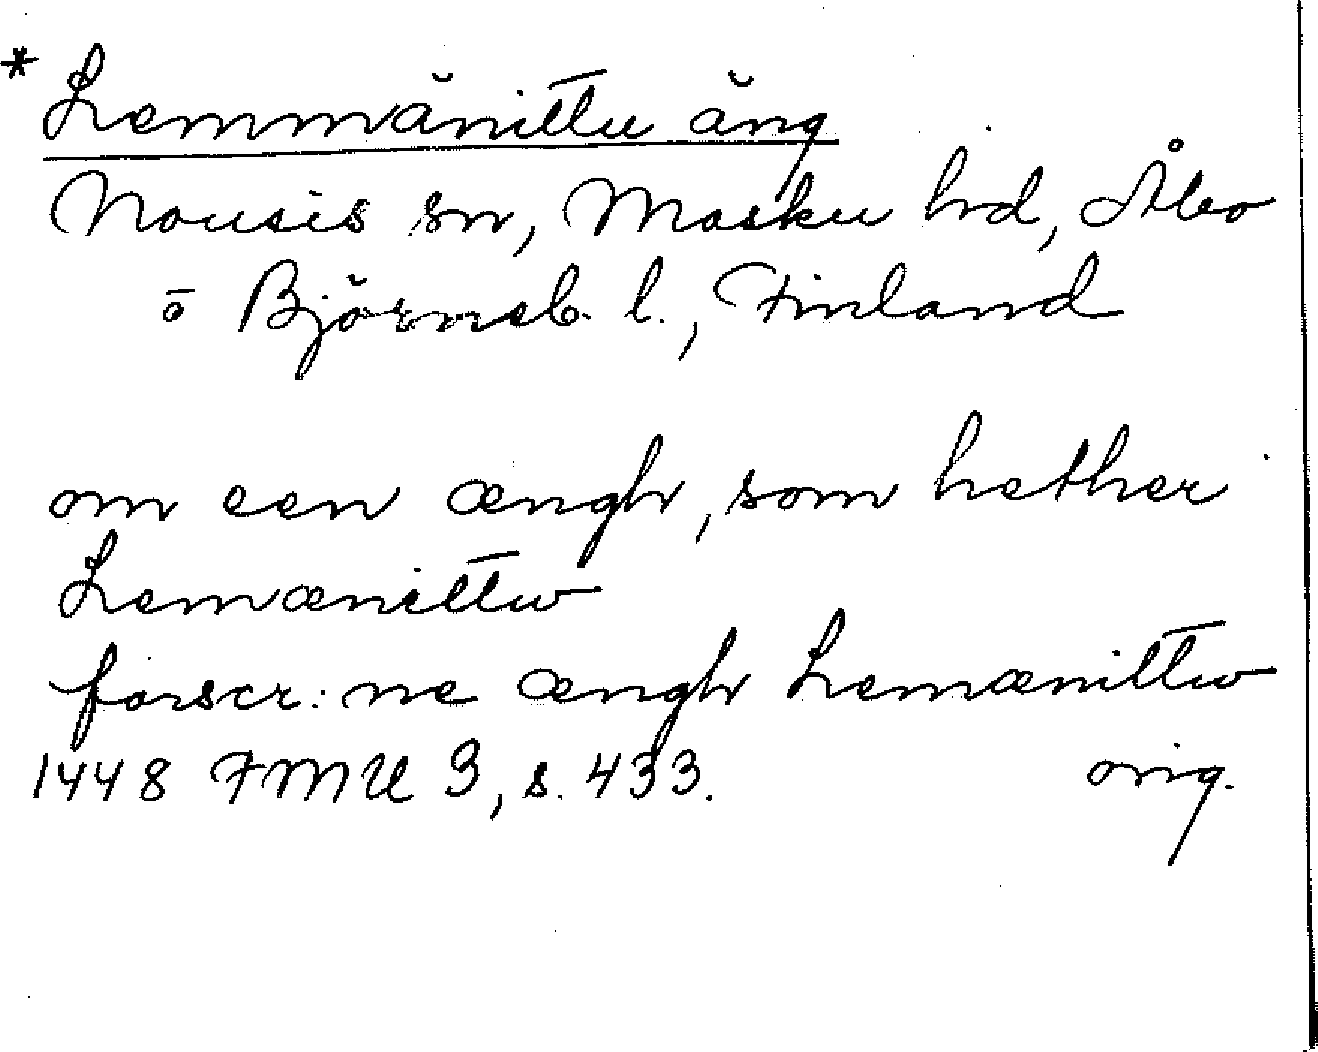 * Lemmänittu äng
Nousis sn, Masku hd, Åbo
o Björneb. l., Finland
om een ængh, som hether
Lemænittw
forscr:ne ængh Lemænittw
1448 FMU 3, s. 433. orig.